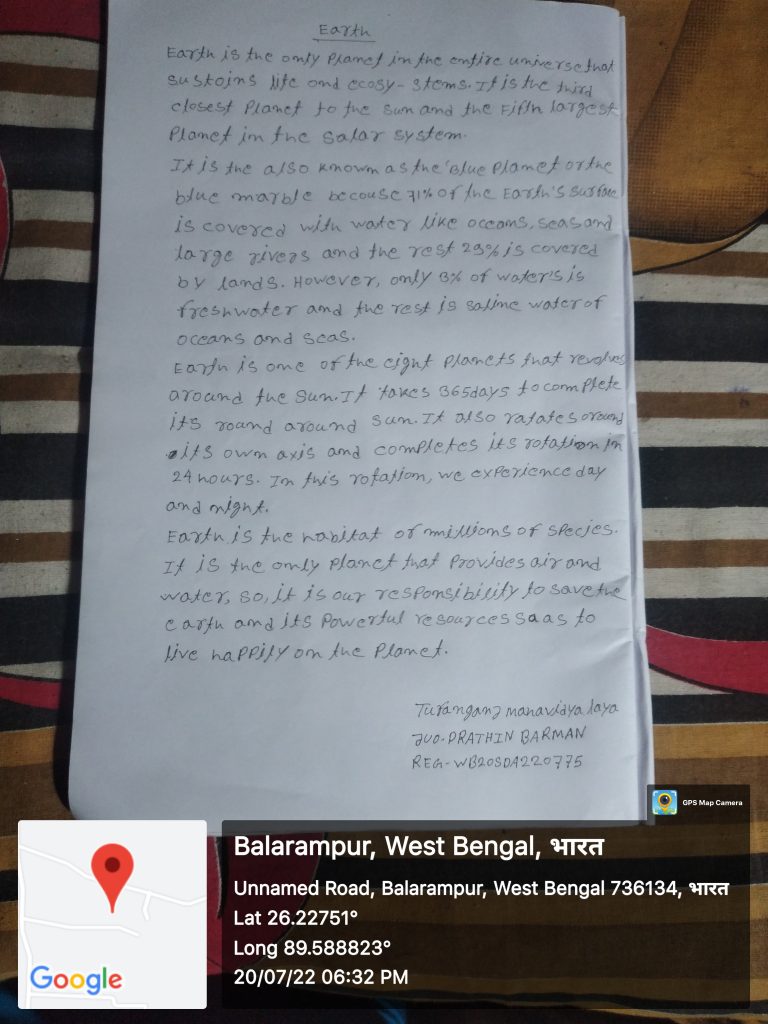 Earth
Earth is the only Planet in the entire universe that
sustains life and ecosy-stems. It is the third
closest Planet to the sun and the Fifth largest
Planet in the salar system.
It is the also known as the 'Blue Planet or the
blue marble becouse 71% of the Earth's surface
is covered with water like oceans, seas and
large rivers and the rest 29% is covered
by lands. However, only 3% of water's is
freshwater and the rest is saline water of
oceans and seas.
Earth is one of the eight Planets that revolves
around the sun. It takes 365days to complete
its round around sun. It also ratates around
its own axis and completes its rotation in
24 hours. In this rotation, we experience day
and night.
Earth is the habitat of millions of species.
It is the only Planet that Provides air and
water, so, it is our responsibility to save the
earth and its Powerful resources saas to
live happily on the Planet.
Turanganj mahavidya laya
JUO-PRATHIN BARMAN
REG-WB20SDA220775
GPS Map Camera
Balarampur, West Bengal, भारत
Unnamed Road, Balarampur, West Bengal 736134, भारत
Lat 26.22751°
Long 89.588823°
20/07/22 06:32 PM
Google